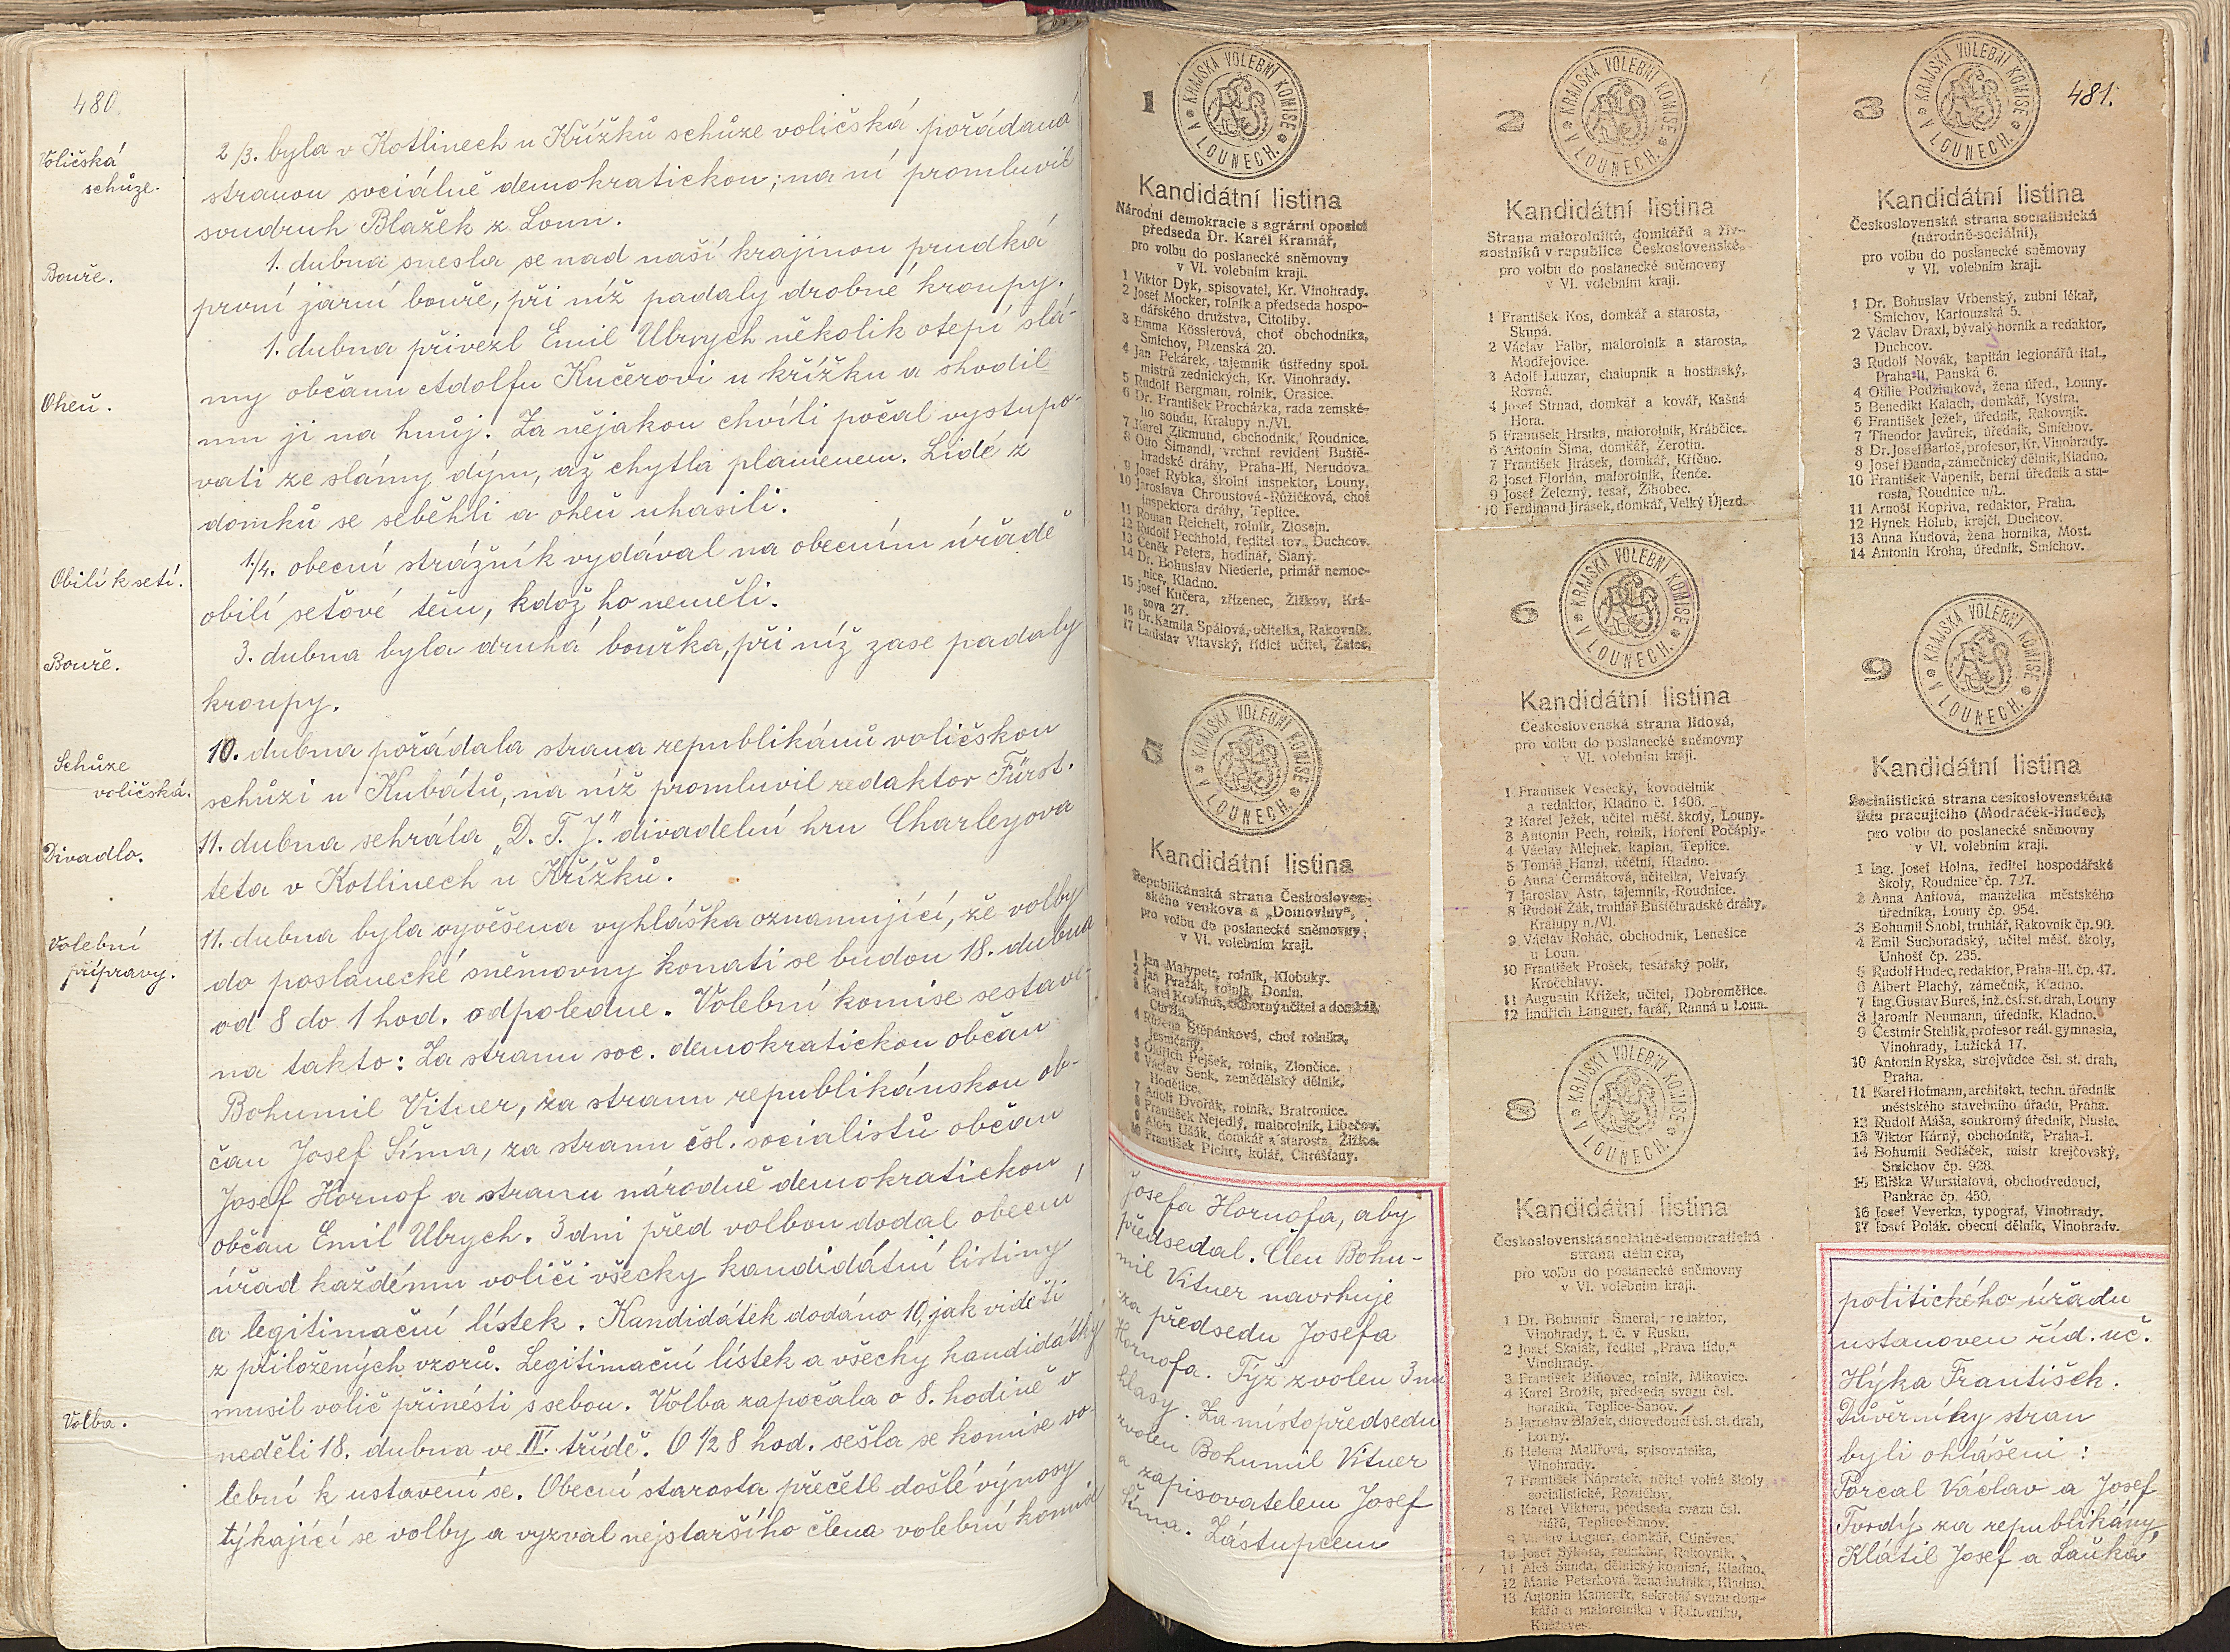 480.
Voličská
schůze.
2/3. byla v Kotlinech u Křížků schůze voličská pořádaná
stranou sociálně demokratickou; na ní promluvil
soudruh Blažek z Loun.
Bouře.
1. dubna snesla se nad naší krajinou prudká
první jarní bouře, při níž padaly drobné kroupy.
Oheň.
1. dubna přivezl Emil Ubrych několik otepí slá-
my občanu Adolfu Kučerovi u křížku a shodil
mu ji na hnůj. Za nějakou chvíli počal vystupo-
vati ze slámy dým, až chytla plamenem. Lidé z
domků se seběhli a oheň uhasili.
Obilí k setí.
1/4. obecní strážník vydával na obecním úřadě
obilí seťové těm, kdož ho neměli.
Bouře.
3. dubna byla druhá bouřka, při níž zase padaly
kroupy.
Schůze
voličská.
10. dubna pořádala strana republikánů voličskou
schůzi u Kubátů, na níž promluvil redaktor Fürst.
Divadlo.
11. dubna sehrála „D. T. J.“ divadelní hru Charleyova
teta v Kotlinech u Křížků.
Volební
přípravy.
11. dubna byla vyvěšena vyhláška oznamující, že volby
do poslanecké sněmovny konati se budou 18. dubna
od 8 do 1 hod. odpoledne. Volební komise sestave-
na takto: Za stranu soc. demokratickou občan
Bohumil Vitner, za stranu republikánskou ob-
čan Josef Šíma, za stranu čsl. socialistů občan
Josef Hornof a stranu národně demokratickou
občan Emil Ubrych. 3 dni před volbou dodal obecní
úřad každému voliči všecky kandidátní listiny
a legitimační lístek. Kandidátek dodáno 10, jak viděti
z přiložených vzorů. Legitimační lístek a všecky kandidátky
musil volič přinésti s sebou. Volba započala o 8. hodině v
Volba.
neděli 18. dubna ve IV. třídě. O 1/2 8 hod. sešla se komise vo-
lební k ustavení se. Obecní starosta přečetl došlé výnosy
týkající se volby a vyzval nejstaršího člena volební komise
1
KRAJSKÁ VOLEBNÍ KOMISE
V LOUNECH.
Kandidátní listina
Národní demokracie s agrární oposicí
předseda Dr. Karel Kramář,
pro volbu do poslanecké sněmovny
v VI. volebním kraji.
1 Viktor Dyk, spisovatel, Kr. Vinohrady.
2 Josef Mocker, rolník a předseda hospo-
dářského družstva, Citoliby.
3 Emma Kösslerová, choť obchodníka,
Smíchov, Plzenská 20.
4 Jan Pekárek, tajemník ústředny spol.
mistrů zednických, Kr. Vinohrady.
5 Rudolf Bergman, rolník, Orasice.
6 Dr. František Procházka, rada zemské-
ho soudu, Kralupy n./Vl.
7 Karel Zikmund, obchodník, Roudnice.
8 Otto Šimandl, vrchní revident Buště-
hradské dráhy, Praha-III, Nerudova.
9 Josef Rybka, školní inspektor, Louny.
10 Jaroslava Chroustová-Růžičková, choť
inspektora dráhy, Teplice.
11 Roman Reichelt, rolník, Zlosejn.
12 Rudolf Pechhold, ředitel tov., Duchcov.
13 Čeněk Peters, hodinář, Slaný.
14 Dr. Bohuslav Niederle, primář nemoc-
nice, Kladno.
15 Josef Kučera, zřízenec, Žižkov, Krá-
sova 27.
16 Dr. Kamila Spálová, učitelka, Rakovník.
17 Ladislav Vltavský, řídící učitel, Žatec.
5
KRAJSKÁ VOLEBNÍ KOMISE
V LOUNECH.
Kandidátní listina
Republikánská strana Českosloven-
ského venkova a „Domoviny“,
pro volbu do poslanecké sněmovny
v VI. volebním kraji.
1 Jan Malypetr, rolník, Klobuky.
2 Jan Pražák, rolník, Donín.
3 Karel Krolmus, odborný učitel a domkář,
4 Růžena Štěpánková, choť rolníka,
Jesničany.
5 Oldřich Pejšek, rolník, Zlončice.
6 Václav Šenk, zemědělský dělník,
Hodětice.
7 Adolf Dvořák, rolník, Bratronice.
8 František Nejedlý, malorolník, Libečov.
9 Alois Ušák, domkář a starosta, Žižice.
10 František Pichrt, kolář, Chrášťany.
Josefa Hornofa, aby
předsedal. Člen Bohu-
mil Vitner navrhuje
za předsedu Josefa
Hornofa. Týž zvolen 3 mi
hlasy. Za místopředsedu
zvolen Bohumil Vitner
a zapisovatelem Josef
Šíma. Zástupcem
2
KRAJSKÁ VOLEBNÍ KOMISE
V LOUNECH.
Kandidátní listina
Strana malorolníků, domkářů a živ-
nostníků v republice Československé,
pro volbu do poslanecké sněmovny
v VI. volebním kraji.
1 František Kos, domkář a starosta,
Skupá.
2 Václav Falbr, malorolník a starosta,
Modřejovice.
3 Adolf Lunzar, chalupník a hostinský,
Rovné.
4 Josef Strnad, domkář a kovář, Kašná
Hora.
5 František Hrstka, malorolník, Krábčice.
6 Antonín Šíma, domkář, Žerotín.
7 František Jirásek, domkář, Křično.
8 Josef Florián, malorolník, Řenče.
9 Josef Železný, tesař, Žihobec.
10 Ferdinand Jirásek, domkář, Velký Újezd.
6
KRAJSKÁ VOLEBNÍ KOMISE
V LOUNECH.
Kandidátní listina
Československá strana lidová,
pro volbu do poslanecké sněmovny
v VI. volebním kraji.
1 František Vesecký, kovodělník
a redaktor, Kladno č. 1406.
2 Karel Ježek, učitel měšť. školy, Louny.
3 Antonín Pech, rolník, Hoření Počáply.
4 Václav Mlejnek, kaplan, Teplice.
5 Tomáš Hanzl, účetní, Kladno.
6 Anna Čermáková, učitelka, Velvary.
7 Jaroslav Astr, tajemník, Roudnice.
8 Rudolf Žák, truhlář Buštěhradské dráhy,
Kralupy n./Vl.
9 Václav Roháč, obchodník, Lenešice
u Loun.
10 František Prošek, tesařský polír,
Kročehlavy.
11 Augustin Křížek, učitel, Dobroměřice.
12 Jindřich Langner, farář, Ranná u Loun.
8
KRAJSKÁ VOLEBNÍ KOMISE
V LOUNECH.
Kandidátní listina
Československá sociálně-demokratická
strana dělnická,
pro volbu do poslanecké sněmovny
v VI. volebním kraji.
1 Dr. Bohumír Šmeral, redaktor,
Vinohrady, t. č. v Rusku.
2 Josef Skalák, ředitel „Práva lidu,“
Vinohrady.
3 František Biňovec, rolník, Mikovice.
4 Karel Brožík, předseda svazu čsl.
horníků, Teplice-Šanov.
5 Jaroslav Blažek, dílovedoucí čsl. st. drah,
Louny.
6 Helena Malířová, spisovatelka,
Vinohrady.
7 František Náprstek, učitel volné školy
socialistické, Rozdělov.
8 Karel Viktora, předseda svazu čsl.
Teplice-Šanov.
9 Václav Legner, domkář, Ctiněves.
10 Josef Sýkora, redaktor, Rakovník.
11 Aleš Šunda, dělnický komisař, Kladno.
12 Marie Peterková, žena hutníka, Kladno.
13 Antonín Kameník, sekretář svazu dom-
kářů a malorolníků v Rakovníku,
Kněževes.
3
KRAJSKÁ VOLEBNÍ KOMISE
V LOUNECH.
481.
Kandidátní listina
Československá strana socialistická
(národně-sociální),
pro volbu do poslanecké sněmovny
v VI. volebním kraji.
1 Dr. Bohuslav Vrbenský, zubní lékař,
Smíchov, Kartouzská 5.
2 Václav Draxl, bývalý horník a redaktor,
Duchcov.
3 Rudolf Novák, kapitán legionářů ital.,
Praha-II, Panská 6.
4 Otilie Podzimková, žena úřed., Louny.
5 Benedikt Kalach, domkář, Kystra.
6 František Ježek, úředník, Rakovník.
7 Theodor Javůrek, úředník, Smíchov.
8 Dr. Josef Bartoš, profesor, Kr. Vinohrady.
9 Josef Danda, zámečnický dělník, Kladno.
10 František Vápeník, berní úředník a sta-
rosta, Roudnice n/L.
11 Arnošt Kopřiva, redaktor, Praha.
12 Hynek Holub, krejčí, Duchcov.
13 Anna Kudová, žena horníka, Most.
14 Antonín Kroha, úředník, Smíchov.
9
KRAJSKÁ VOLEBNÍ KOMISE
V LOUNECH.
Kandidátní listina
Socialistická strana československého
lidu pracujícího (Modráček-Hudec),
pro volbu do poslanecké sněmovny
v VI. volebním kraji.
1 Ing. Josef Holna, ředitel hospodářské
školy, Roudnice čp. 727.
2 Anna Anitová, manželka městského
úředníka, Louny čp. 954.
3 Bohumil Šnobl, truhlář, Rakovník čp. 90.
4 Emil Suchoradský, učitel měšť. školy,
Unhošť čp. 235.
5 Rudolf Hudec, redaktor, Praha-III. čp. 47.
6 Albert Plachý, zámečník, Kladno.
7 Ing. Gustav Bureš, inž. čsl. st. drah, Louny
8 Jaromír Neumann, úředník, Kladno.
9 Čestmír Stehlík, profesor reál. gymnasia,
Vinohrady, Lužická 17.
10 Antonín Ryska, strojvůdce čsl. st. drah,
Praha.
11 Karel Hofmann, architekt, techn. úředník
městského stavebního úřadu, Praha.
12 Rudolf Máša, soukromý úředník, Nusle.
13 Viktor Kárný, obchodník, Praha-I.
14 Bohumil Sedláček, mistr krejčovský,
Smíchov čp. 928.
15 Eliška Wurstialová, obchodvedoucí,
Pankrác čp. 450.
16 Josef Veverka, typograf, Vinohrady.
17 Josef Polák, obecní dělník, Vinohrady.
politického úřadu
ustanoven říd. uč.
Hýka František.
Důvěrníky stran
byli ohlášeni:
Porcal Václav a Josef
Tvrdý za republikány,
Klátil Josef a Laňka